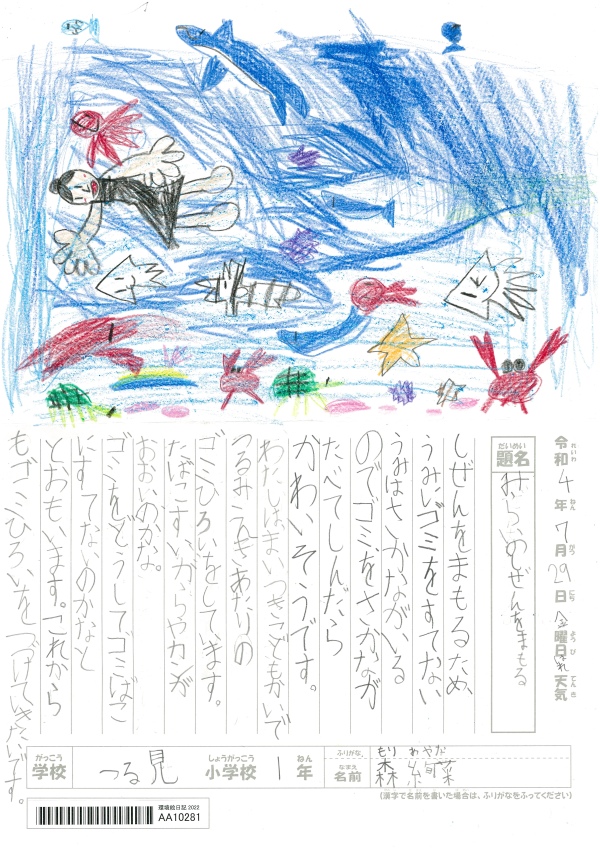 令和4年7月29日金曜日 はれ 天気
れいわ ねん がつ にち ようび てんき
だいめい
題名 みらいのしぜんをまもる
しぜんをまもるため、
うみにゴミをすてない
うみはさかながいる
のでゴミをさかなが
たべてしんだら
かわいそうです。
わたしはまいつきこどもかいで
つるみえきあたりの
ゴミひろいをしています。
たばこすいがらやカンが
おおいのかな。
ゴミをどうしてゴミばこ
にすてないのかなと
とおもいます。これから
もゴミひろいをつづけていきたいです。
がっこう
学校 つる見 小学校 1年
しょうがっこう ねん
ふりがな もり あやな
なまえ
名前 森 絢菜
(漢字で名前を書いた場合は、ふりがなをふってください)
環境絵日記 2022
AA10281